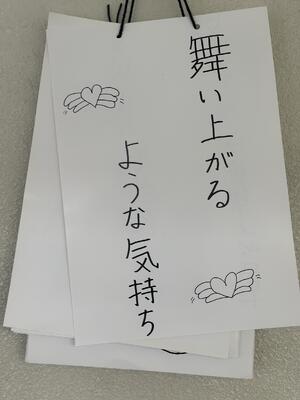 舞い上がる
ような気持ち